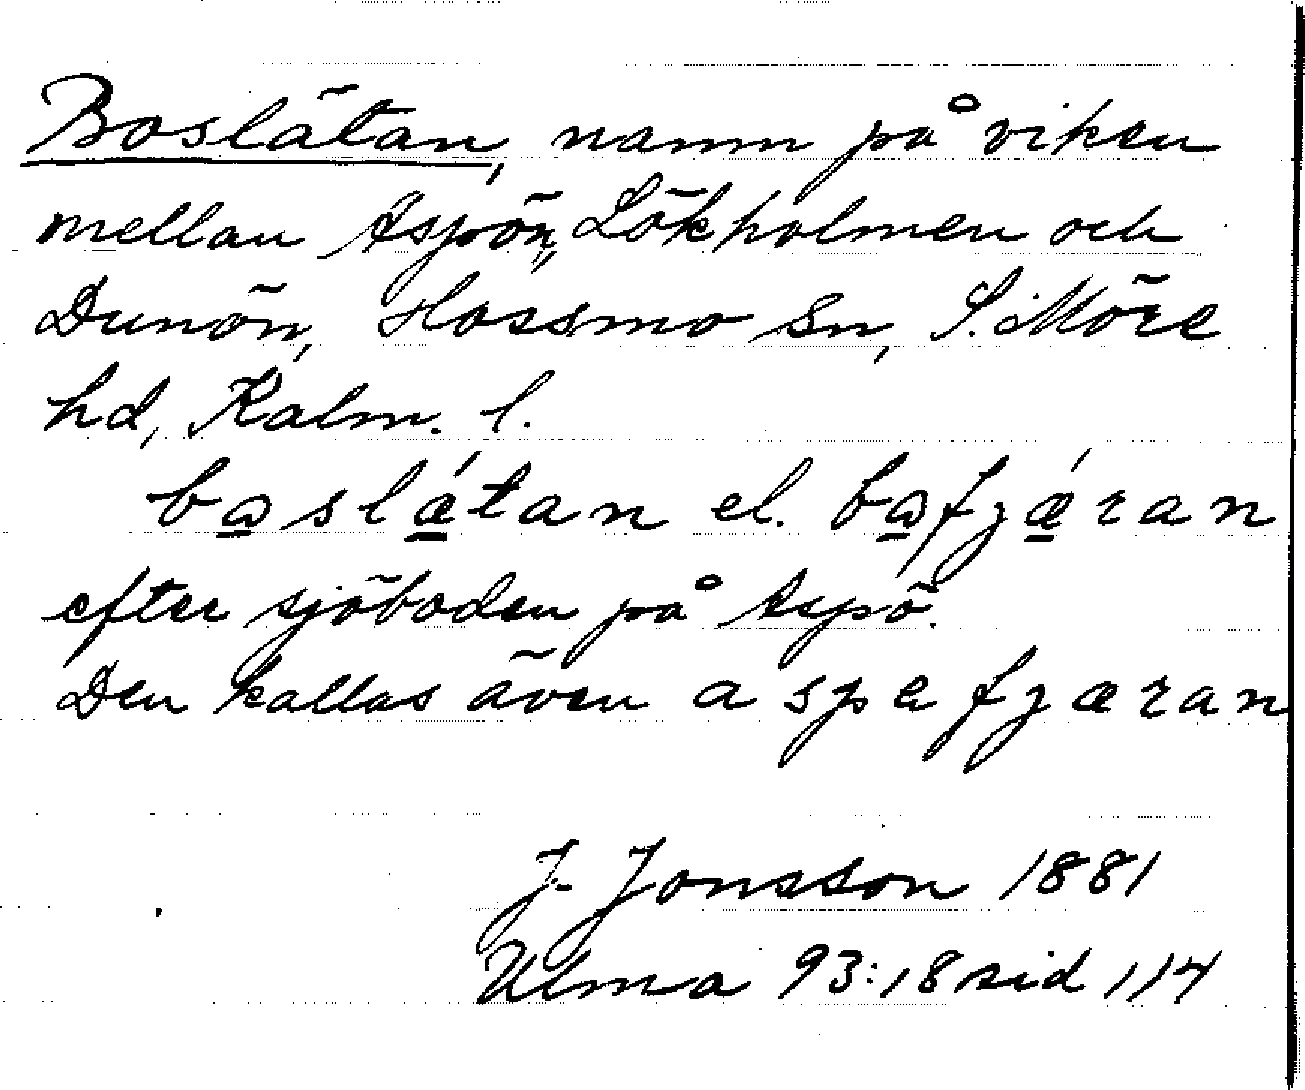 Boslätan, namn på viken
mellan Aspön, Lökholmen och
Dunön, Hossmo Sn, S. Möre
hd, Kalm. l.
baslǽtan el. bafjǽran
efter sjöboden på Aspö.
Den kallas även aspefjæran
J. Jonsson 1881
Ulma 93:18 sid 114